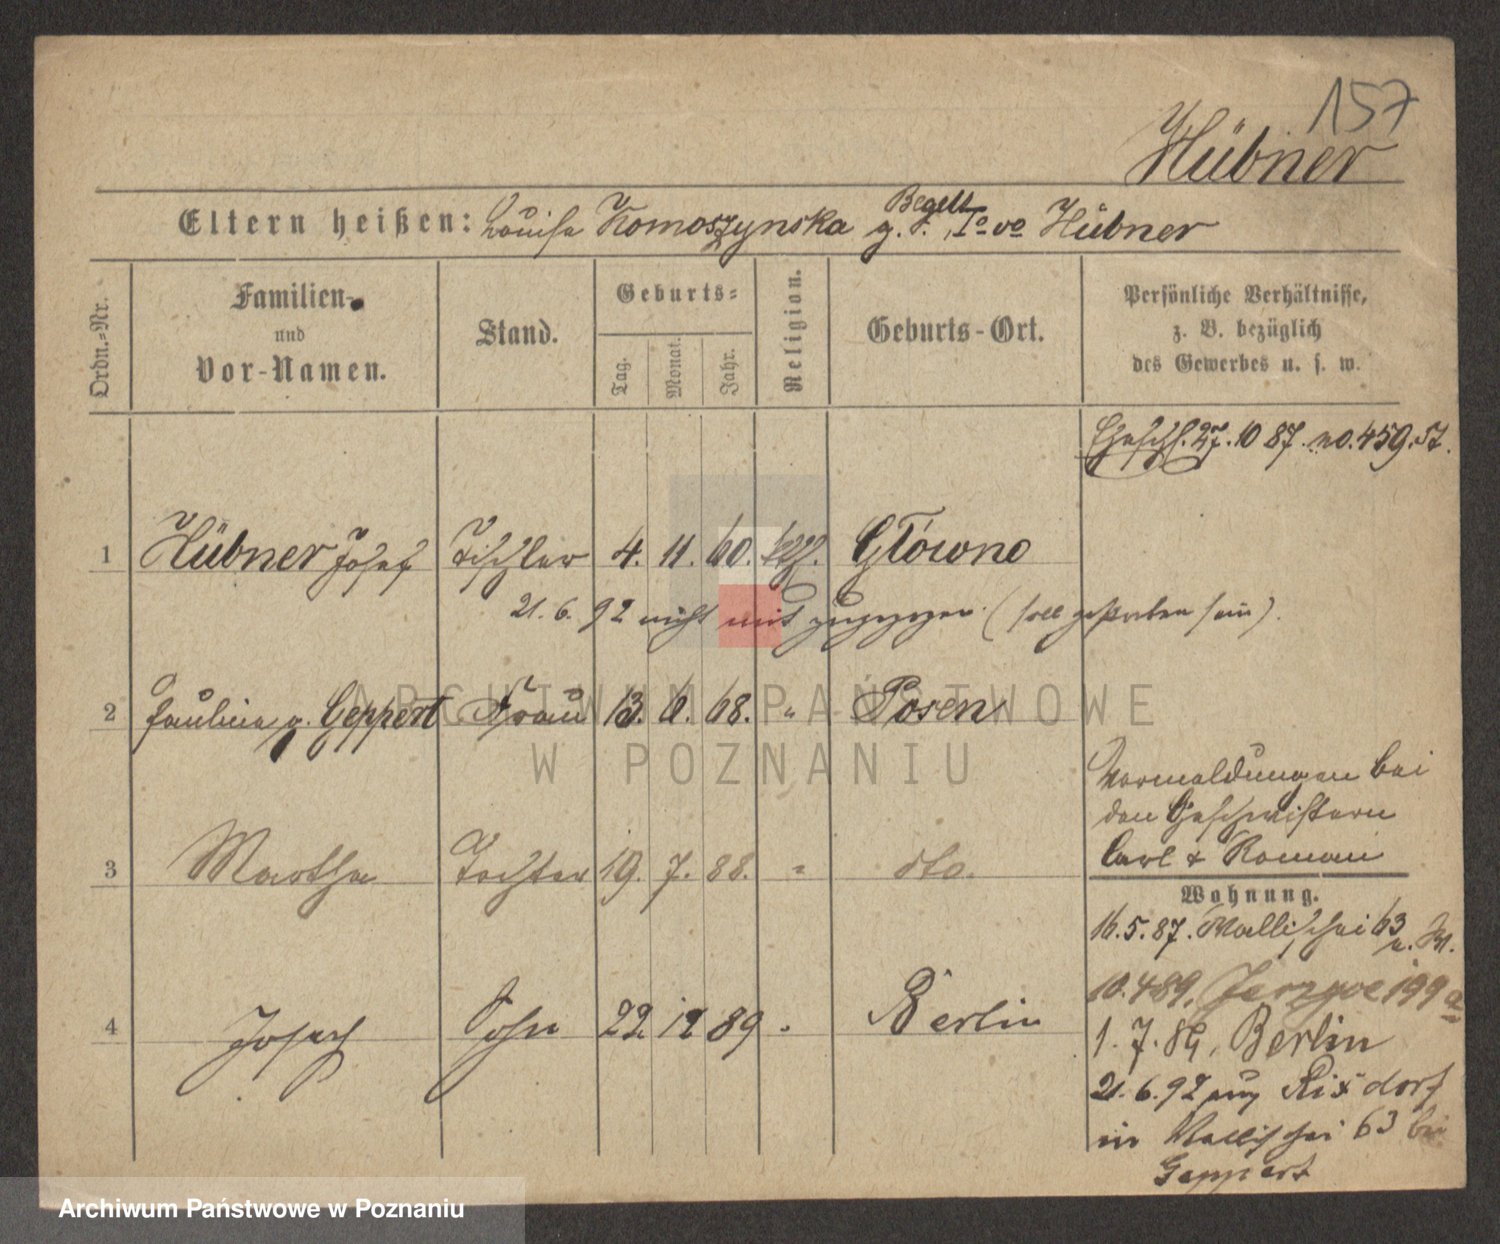 157
Hübner
Eltern heißen: Louisa Komoszynska g. Begelt, Io vo Hübner
Ordn.-Nr.
Familien-
und
Vor-Namen.
Stand.
Geburts-
Tag.
Monat.
Jahr.
Religion.
Geburts-Ort.
Persönliche Verhältnisse,
z. B. bezüglich
des Gewerbes u. s. w.
Eheschl. 27. 10 87. no. 459. St.
1 Hübner Josef Tischler 4. 11. 60. kth. Główno
21. 6. 92 nicht mit zugezogen. (soll gestorben sein).
2 Paulina g. Geppert Frau 13. 6. 68. " Posen
Vormeldungen bei
den Geschwistern
Carl & Roman
3 Martha Tochter 19. 7. 88. " dto.
Wohnung.
16. 5. 87. Wallischei 63
10. 4 89. Jerzyce 199a
4 Josef Sohn 22 12 89 " Berlin
1. 7. 89, Berlin
21. 6. 92 aus Rixdorf
in Wallischei 63 bei
Geppert
ARCHIWUM PAŃSTWOWE
W POZNANIU
Archiwum Państwowe w Poznaniu